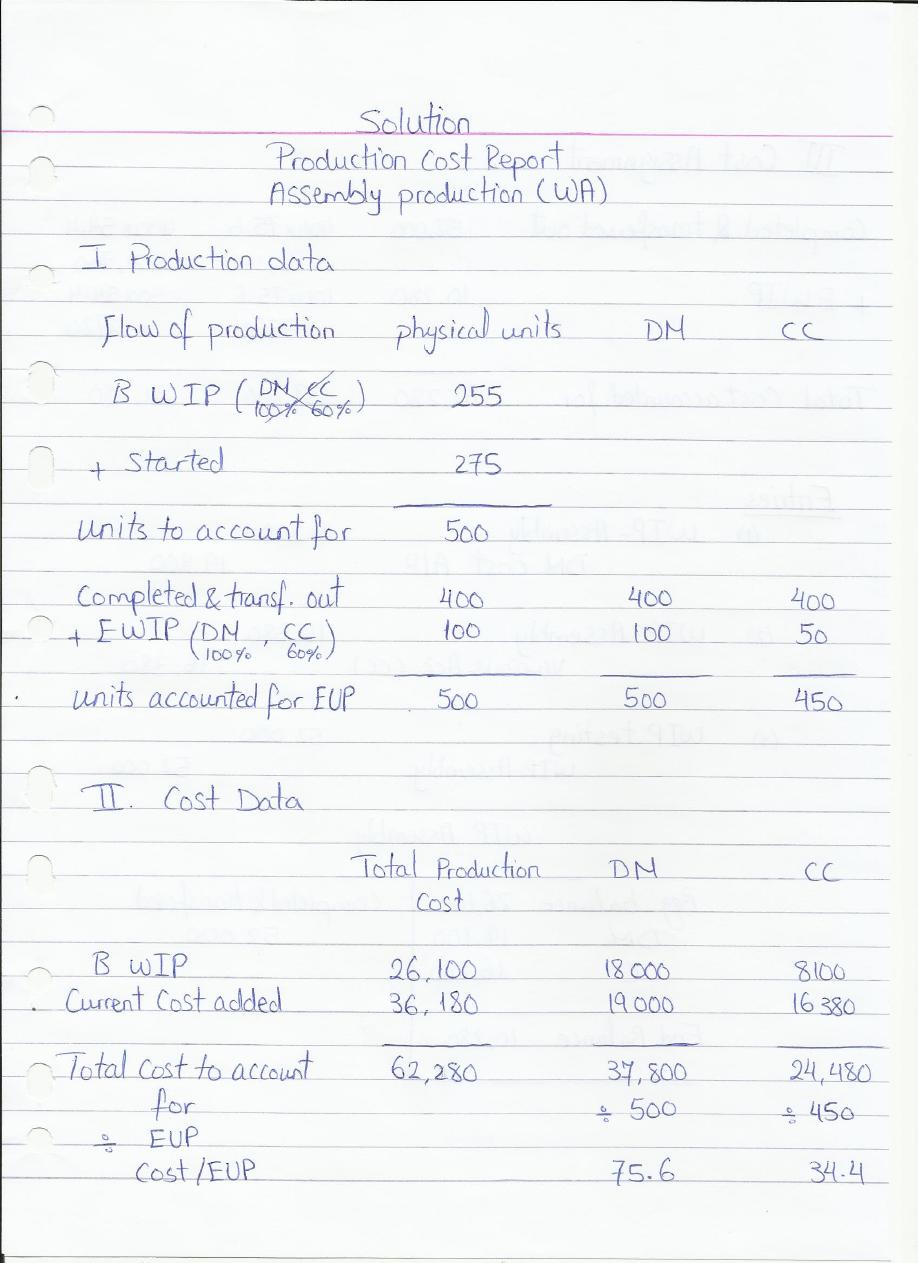 Solution
Production Cost Report
Assembly production (WA)
I Production data
Flow of production physical units DM CC
B WIP (DM 100% CC 60%) 255
+ Started 275
units to account for 500
Completed & transf. out 400 400 400
+ EWIP (DM 100%, CC 60%) 100 100 50
units accounted for EUP 500 500 450
II. Cost Data
Total Production Cost DM CC
B WIP 26,100 18000 8100
Current Cost added 36,180 19000 16380
Total Cost to account 62,280 37,800 24,480
for ÷ 500 ÷ 450
÷ EUP
Cost/EUP 75.6 34.4